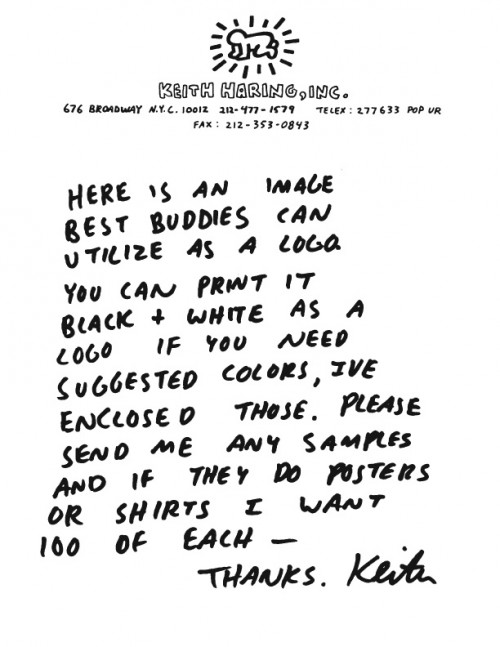 KEITH HARING, INC.
676 BROADWAY N.Y.C. 10012 212-477-1579 TELEX: 277633 POP UR
FAX: 212-353-0843
HERE IS AN IMAGE
BEST BUDDIES CAN
UTILIZE AS A LOGO
YOU CAN PRINT IT
BLACK + WHITE AS A
LOGO IF YOU NEED
SUGGESTED COLORS, IVE
ENCLOSED THOSE. PLEASE
SEND ME ANY SAMPLES
AND IF THEY DO POSTERS
OR SHIRTS I WANT
100 OF EACH —
THANKS. Keith